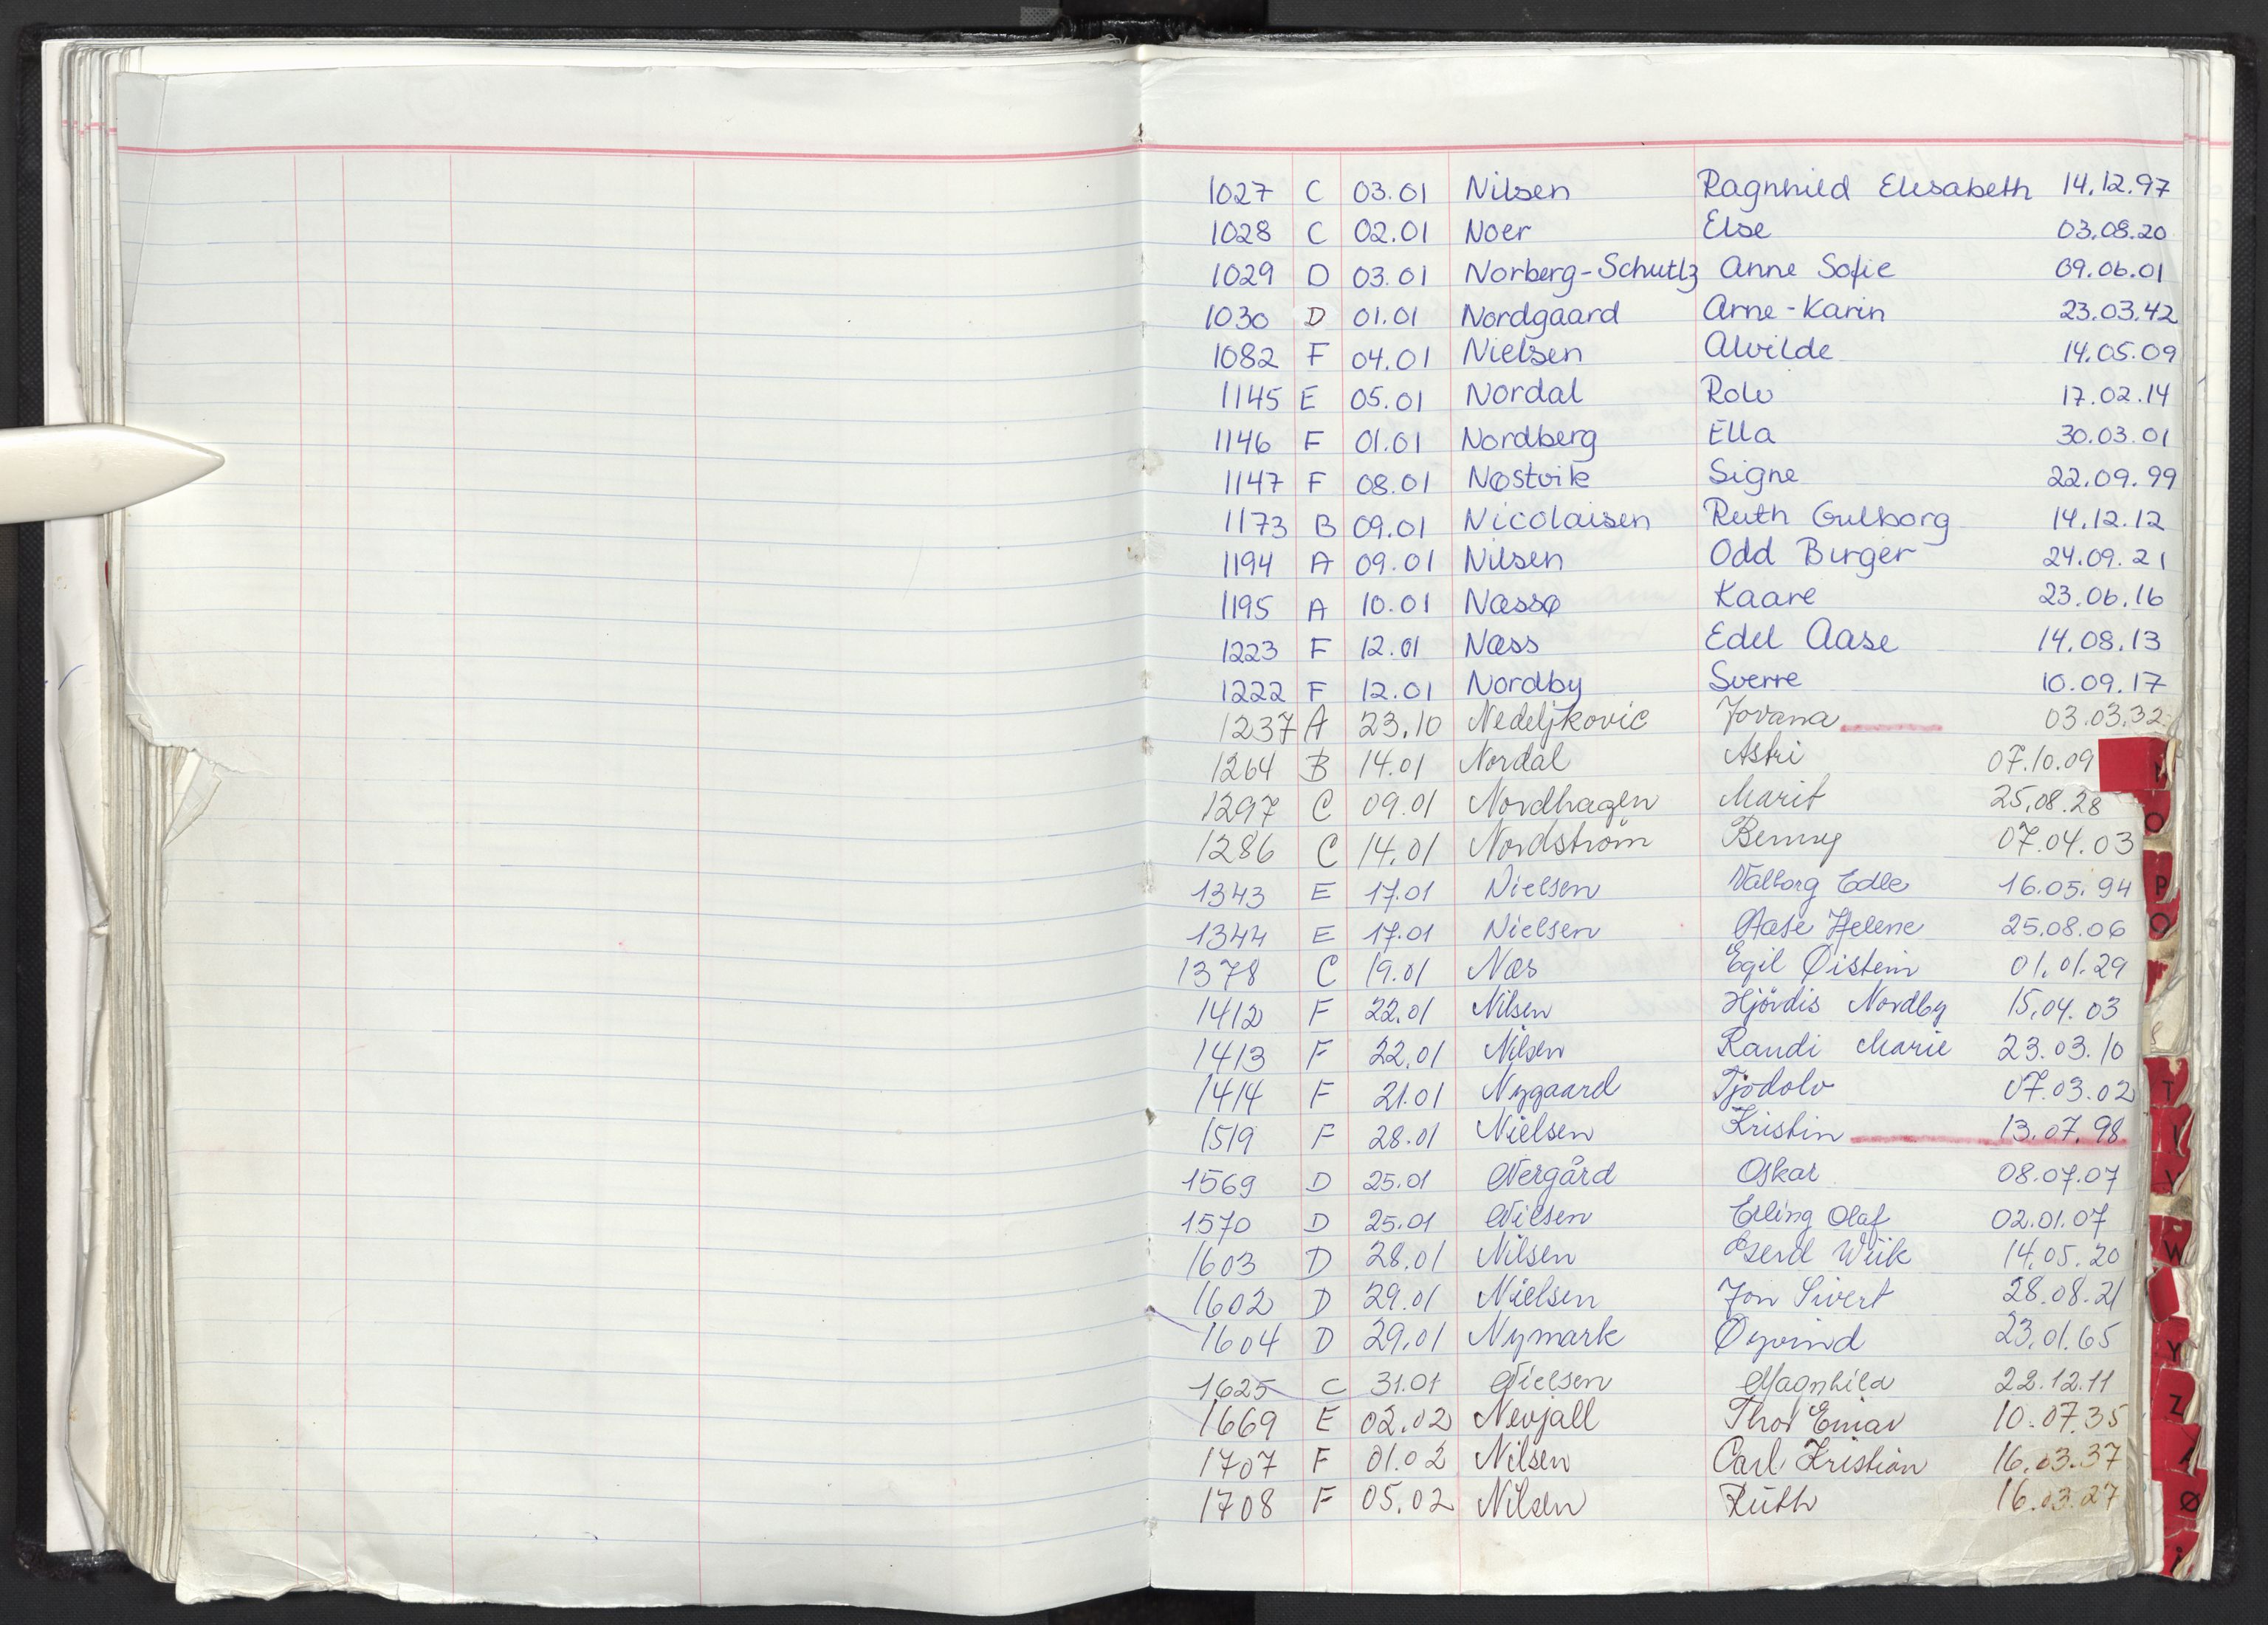 1027 C 03.01 Nilsen Ragnhild Elisabeth 14.12.97
1028 C 02.01 Noer Else 03.08.20
1029 D 03.01 Norberg-Schultz Anne Sofie 09.06.01
1030 D 01.01 Nordgaard Arne-Karin 23.03.42
1082 F 04.01 Nielsen Alvilde 14.05.09
1145 E 05.01 Nordal Rolv 17.02.14
1146 F 01.01 Nordberg Ella 30.03.01
1147 F 08.01 Nøstvik Signe 22.09.99
1173 B 09.01 Nicolaisen Ruth Gulborg 14.12.12
1194 A 09.01 Nilsen Odd Birger 24.09.21
1195 A 10.01 Næssø Kaare 23.06.16
1223 F 12.01 Næss Edel Aase 14.08.13
1222 F 12.01 Nordby Sverre 10.09.17
1237 A 23.10 Nedeljkovic Jovana 03.03.32
1264 B 14.01 Nordal Astri 07.10.09
1297 C 09.01 Nordhagen Marit 25.08.28
O
1286 C 14.01 Nordström Benny 07.04.03
1343 E 17.01 Nielsen Valborg Edle 16.05.94 P
1344 E 17.01 Nielsen Aase Helene 25.08.06 Q
1378 C 19.01 Næs Egil Øistein 01.01.29
1412 F 22.01 Nilsen Hjördis Nordby 15.04.03
1413 F 22.01 Nilsen Randi Marie 23.03.10
1414 F 21.01 Nygaard Tjodolv 07.03.02 T
1519 F 28.01 Nielsen Kristin 13.07.98
1569 D 25.01 Nergård Oskar 08.07.07 V
1570 D 25.01 Nilsen Erling Olaf 02.01.07
1603 D 28.01 Nilsen Gerd Wiik 14.05.20 W
1602 D 29.01 Nielsen Jon Sivert 28.08.21
1604 D 29.01 Nymark Øyvind 23.01.65 Y
1625 C 31.01 Nielsen Magnhild 22.12.11
1669 E 02.02 Nevjall Thor Einar 10.07.35 Z
1707 F 01.02 Nilsen Carl Kristian 16.03.37
1708 F 05.02 Nilsen Ruth 16.03.27 Ø